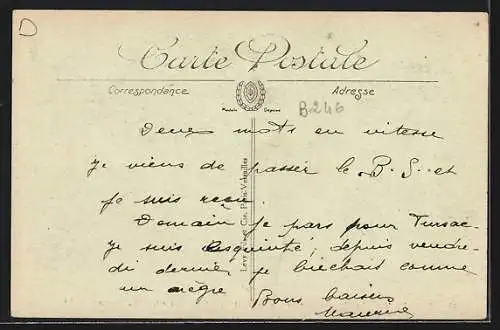 D
Carte Postale
Correspondence
Adresse
Modèle Déposé
B 246
Deux mots en vitesse
je viens de passer le B. S. et
je suis reçu.
Demain je pars pour
je suis esquinté; depuis vendre-
di dernier, je biechais comme
un nègre
Bons baisers
Maurice
Levy et Neurdein Cie, Paris-Versailles